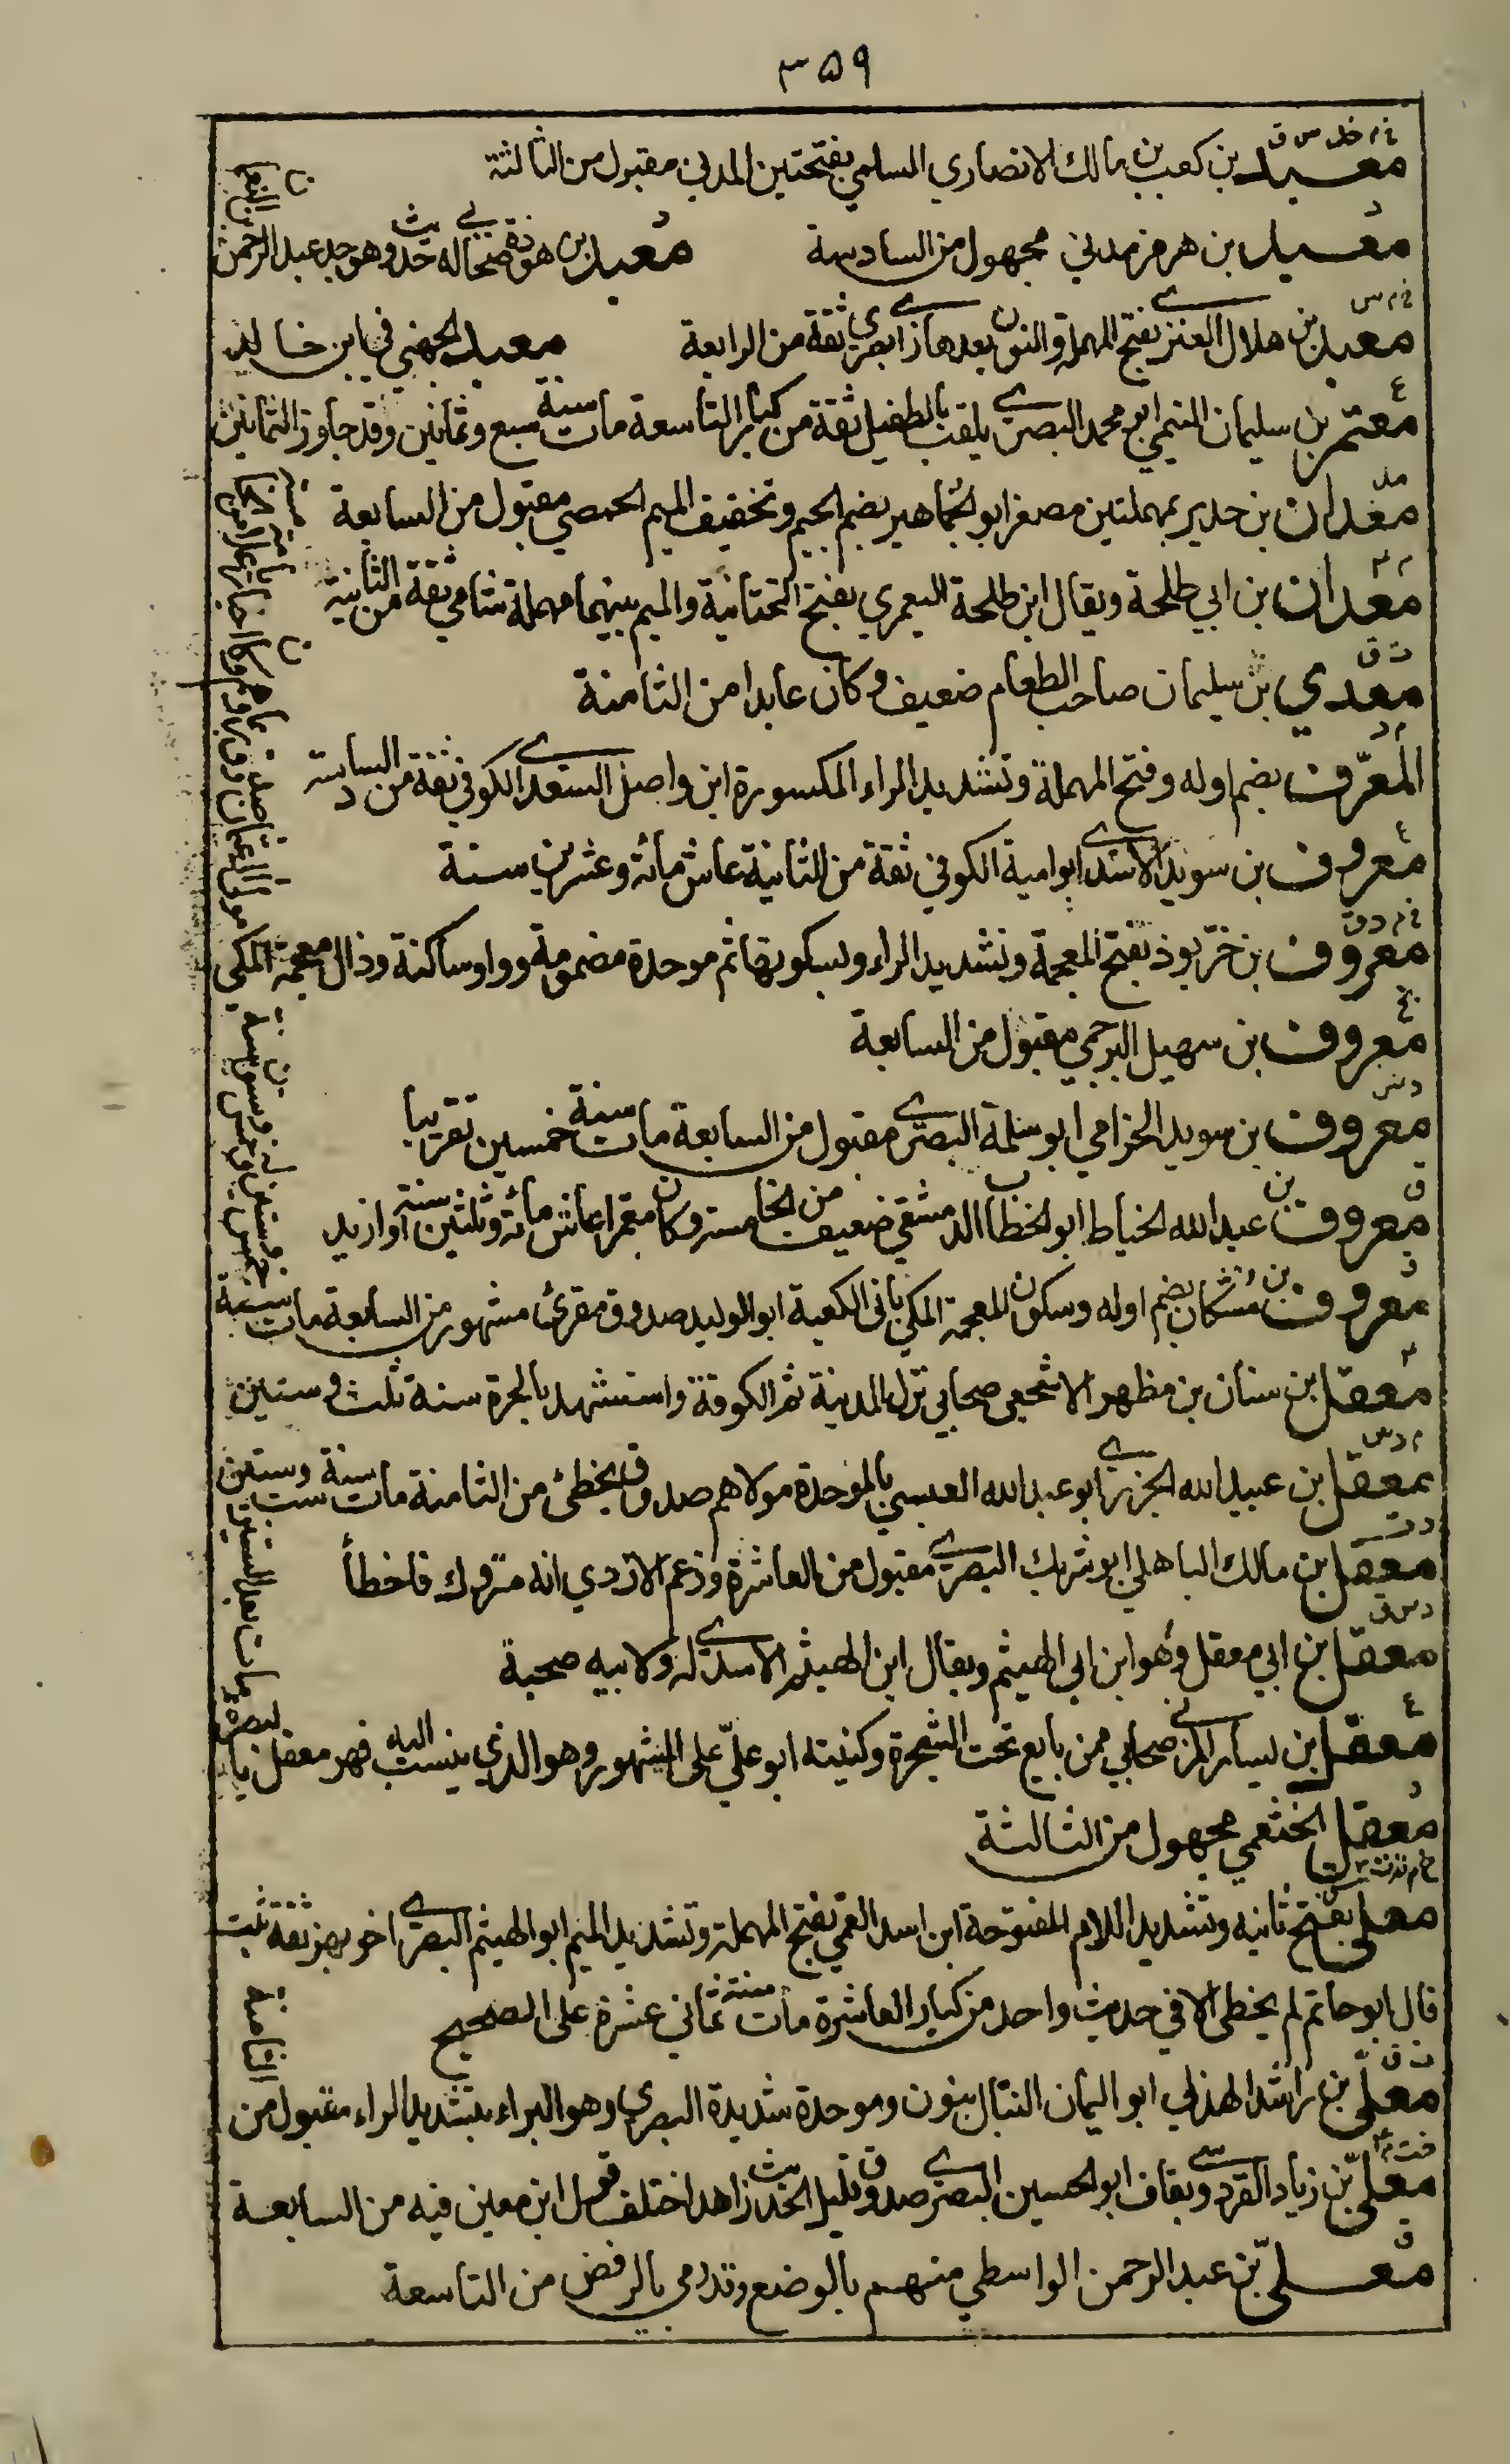 ٣٥٩
خ م خد س ق
معبد بن كعب بن مالك الانصاري السلمي بفتحتين المدني مقبول من الثالثة
د
معبد بن هرمز مدني مجهول من السادسة معبد بن هوذة صحابي له حديث وهو جد عبد الرحمن بن النعمان
خ م س
معبد بن هلال العنزي بفتح المهملة والنون بعدها زاي بصري ثقة من الرابعة معبد الجهني في ابن خالد
ع
معتمر بن سليمان التيمي ابو محمد البصري يلقب بالطفيل ثقة من كبار التاسعة مات سنة سبع وثمانين وقد جاوز الثمانين
مد
معدان بن حدير بمهملتين مصغر ابو الجماهير بضم الجيم وتخفيف الميم الحمصي مقبول من السابعة
م ٤
معدان بن ابي طلحة ويقال ابن طلحة اليعمري بفتح التحتانية والميم بينهما مهملة شامي ثقة من الثانية
ت ق
معدي بن سليمان صاحب الطعام ضعيف وكان عابدا من الثامنة
م د
المعرّف بضم اوله وفتح المهملة وتشديد الراء المكسورة ابن واصل السعدي الكوفي ثقة من السادسة
ع
معروف بن سويد الاسدي ابو امية الكوفي ثقة من الثانية عاش مائة وعشرين سنة
خ م د ق
معروف بن خرّبوذ بفتح المعجمة وتشديد الراء وبسكونها ثم موحدة مضمومة وواو ساكنة وذال معجمة المكي
بخ
معروف بن سهيل البرجمي مقبول من السابعة
د س
معروف بن سويد الجذامي ابو سلمة البصري مقبول من السابعة مات سنة خمسين تقريبا
ق
معروف بن عبد الله الخياط ابو الخطاب الدمشقي ضعيف من الخامسة وكان معمرا عاش مائة وثلثين سنة او ازيد
د
معروف بن مشكان بضم اوله وسكون المعجمة المكي باني الكعبة ابو الوليد صدوق مقرئ مشهور من السابعة مات سنة
٤
معقل بن سنان بن مظهر الاشجعي صحابي نزل المدينة ثم الكوفة واستشهد بالحرة سنة ثلث وستين
م د س
معقل بن عبيد الله الجزري ابو عبد الله العبسي بالموحدة مولاهم صدوق يخطئ من الثامنة مات سنة ست وستين
معقل بن مالك الباهلي ابو شريك البصري مقبول من العاشرة وزعم الازدي انه متروك فاخطأ
د س ق
معقل بن ابي معقل وهو ابن ابي الهيثم ويقال ابن الهيثم الاسدي له ولابيه صحبة
ع
معقل بن يسار المزني صحابي ممن بايع تحت الشجرة وكنيته ابو علي على المشهور وهو الذي ينسب اليه نهر معقل بالبصرة ومات بعد الستين
د
معقل الخثعمي مجهول من الثالثة
معلى بفتح ثانيه وتشديد اللام المفتوحة ابن اسد العمي بفتح المهملة وتشديد الميم ابو الهيثم البصري اخو بهز ثقة ثبت
قال ابو حاتم لم يخطئ الا في حديث واحد من كبار العاشرة مات سنة ثماني عشرة على الصحيح
ت ق
معلّى بن راشد الهذلي ابو اليمان النبّال بنون وموحدة شديدة البصري وهو البراء بتشديد الراء مقبول من الثامنة
خت م ٤
معلّى بن زياد القردوسي بقاف ابو الحسين البصري صدوق قليل الحديث زاهد اختلف قول ابن معين فيه من السابعة
ق
معلّى بن عبد الرحمن الواسطي متهم بالوضع وقد رمي بالرفض من التاسعة